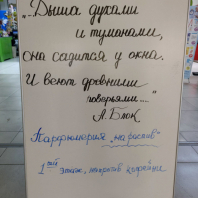 „...Дыша духами
и туманами,
она садится у окна.
И веют древними
поверьями..."
А. Блок
Парфюмерия „на распив"
1ый этаж, напротив кофейни